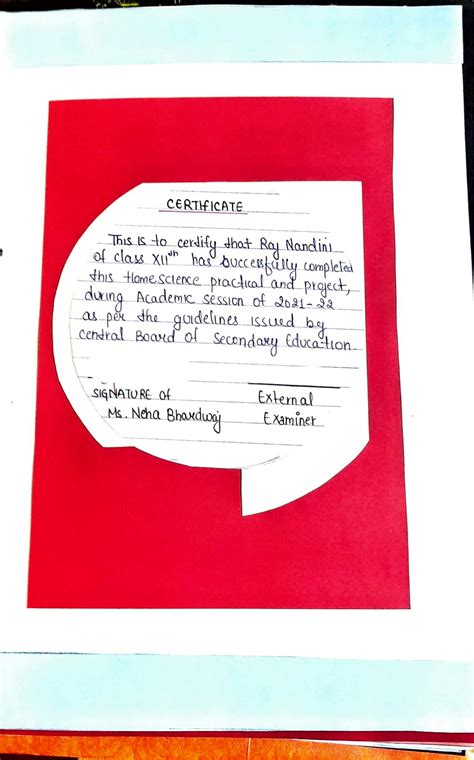 CERTIFICATE
This is to certify that Raj Nandini
of class XIIth has successfully completed
this Homescience practical and project,
during Academic session of 2021-22
as per the guidelines issued by
central Board of Secondary Education
SIGNATURE Of
External
Ms. Neha Bhardwaj
Examiner